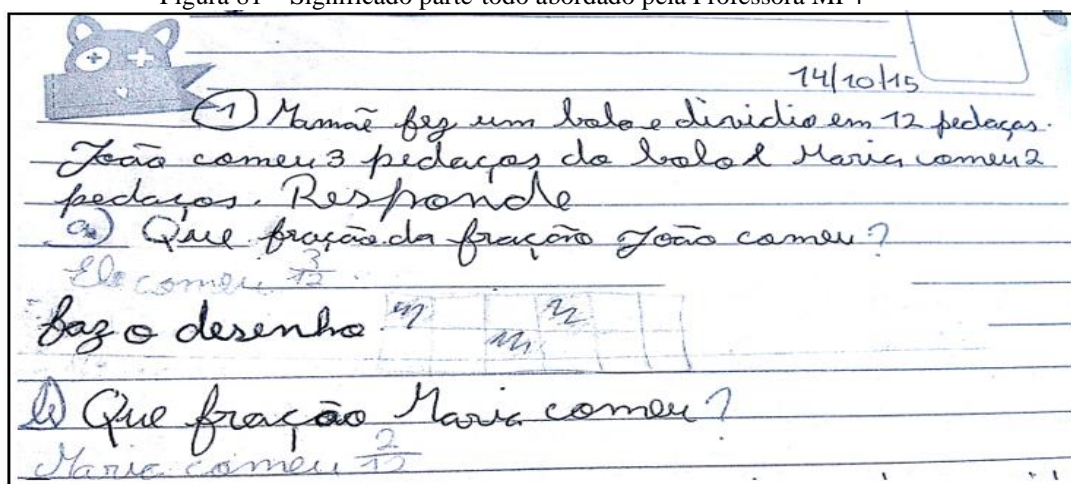 Figura 61 – Significado parte-todo abordado pela Professora MP4
14/10/15
1 Mamãe fez um bolo e dividio em 12 pedaços.
João comeu 3 pedaços do bolo e Maria comeu 2
pedaços. Responde
a) Que fração da fração João comeu?
Ele comeu 3/12.
faz o desenho
b) Que fração Maria comeu?
Maria comeu 2/12